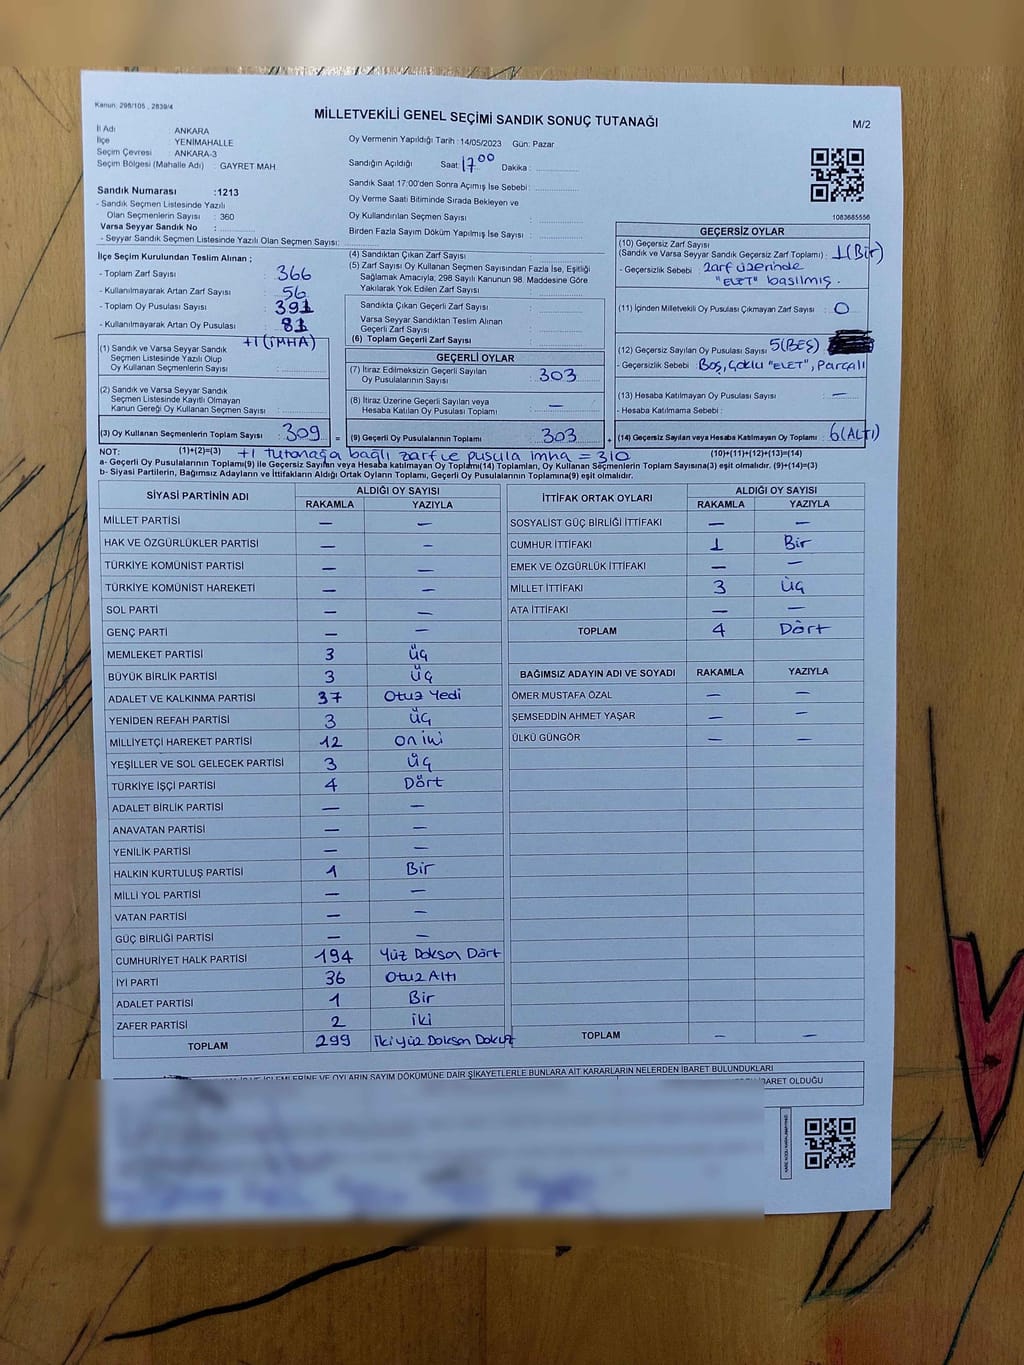 Kanun: 298/105 , 2839/4
MİLLETVEKİLİ GENEL SEÇİMİ SANDIK SONUÇ TUTANAĞI
M/2
İl Adı : ANKARA
İlçe : YENİMAHALLE
Seçim Çevresi : ANKARA-3
Seçim Bölgesi (Mahalle Adı) : GAYRET MAH.
Sandık Numarası :1213
- Sandık Seçmen Listesinde Yazılı
Olan Seçmenlerin Sayısı : 360
Varsa Seyyar Sandık No :
- Seyyar Sandık Seçmen Listesinde Yazılı Olan Seçmen Sayısı:
Oy Vermenin Yapıldığı Tarih :14/05/2023 Gün: Pazar
Sandığın Açıldığı Saat: 17 00 Dakika :
Sandık Saat 17:00'den Sonra Açımış İse Sebebi :
Oy Verme Saati Bitiminde Sırada Bekleyen ve
Oy Kullandırılan Seçmen Sayısı :
Birden Fazla Sayım Döküm Yapılmış İse Sayısı :
1083685556
İlçe Seçim Kurulundan Teslim Alınan ;
- Toplam Zarf Sayısı : 366
- Kullanılmayarak Artan Zarf Sayısı : 56
- Toplam Oy Pusulası Sayısı : 391
- Kullanılmayarak Artan Oy Pusulası : 81
+1 (İMHA)
(1) Sandık ve Varsa Seyyar Sandık
Seçmen Listesinde Yazılı Olup
Oy Kullanan Seçmenlerin Sayısı :
(2) Sandık ve Varsa Seyyar Sandık
Seçmen Listesinde Kayıtlı Olmayan
Kanun Gereği Oy Kullanan Seçmen Sayısı :
(3) Oy Kullanan Seçmenlerin Toplam Sayısı : 309 =
(4) Sandıktan Çıkan Zarf Sayısı :
(5) Zarf Sayısı Oy Kullanan Seçmen Sayısından Fazla İse, Eşitliği
Sağlamak Amacıyla; 298 Sayılı Kanunun 98. Maddesine Göre
Yakılarak Yok Edilen Zarf Sayısı :
Sandıkta Çıkan Geçerli Zarf Sayısı :
Varsa Seyyar Sandıktan Teslim Alınan
Geçerli Zarf Sayısı :
(6) Toplam Geçerli Zarf Sayısı :
GEÇERLİ OYLAR
(7) İtiraz Edilmeksizin Geçerli Sayılan
Oy Pusulalarının Sayısı : 303
(8) İtiraz Üzerine Geçerli Sayılan veya
Hesaba Katılan Oy Pusulası Toplamı : —
(9) Geçerli Oy Pusulalarının Toplamı : 303 +
GEÇERSİZ OYLAR
(10) Geçersiz Zarf Sayısı
(Sandık ve Varsa Seyyar Sandık Geçersiz Zarf Toplamı) : 1(Bir)
- Geçersizlik Sebebi : Zarf üzerinde
"EVET" basılmış.
(11) İçinden Milletvekili Oy Pusulası Çıkmayan Zarf Sayısı : 0
(12) Geçersiz Sayılan Oy Pusulası Sayısı : 5(BEŞ)
- Geçersizlik Sebebi : Boş, Çoklu "EVET", Parçalı
(13) Hesaba Katılmayan Oy Pusulası Sayısı : —
- Hesaba Katılmama Sebebi :
(14) Geçersiz Sayılan veya Hesaba Katılmayan Oy Toplamı : 6(ALTI)
NOT: (1)+(2)=(3) +1 tutanağa bağlı zarf ve pusula imha = 310 (10)+(11)+(12)+(13)=(14)
a- Geçerli Oy Pusulalarının Toplamı(9) ile Geçersiz Sayılan veya Hesaba katılmayan Oy Toplamı(14) Toplamları, Oy Kullanan Seçmenlerin Toplam Sayısına(3) eşit olmalıdır. (9)+(14)=(3)
b- Siyasi Partilerin, Bağımsız Adayların ve İttifakların Aldığı Ortak Oyların Toplamı, Geçerli Oy Pusulalarının Toplamına(9) eşit olmalıdır.
SİYASİ PARTİNİN ADI ALDIĞI OY SAYISI
RAKAMLA YAZIYLA
MİLLET PARTİSİ — —
HAK VE ÖZGÜRLÜKLER PARTİSİ — —
TÜRKİYE KOMÜNİST PARTİSİ — —
TÜRKİYE KOMÜNİST HAREKETİ — —
SOL PARTİ — —
GENÇ PARTİ — —
MEMLEKET PARTİSİ 3 Üç
BÜYÜK BİRLİK PARTİSİ 3 Üç
ADALET VE KALKINMA PARTİSİ 37 Otuz Yedi
YENİDEN REFAH PARTİSİ 3 Üç
MİLLİYETÇİ HAREKET PARTİSİ 12 On iki
YEŞİLLER VE SOL GELECEK PARTİSİ 3 Üç
TÜRKİYE İŞÇİ PARTİSİ 4 Dört
ADALET BİRLİK PARTİSİ — —
ANAVATAN PARTİSİ — —
YENİLİK PARTİSİ — —
HALKIN KURTULUŞ PARTİSİ 1 Bir
MİLLİ YOL PARTİSİ — —
VATAN PARTİSİ — —
GÜÇ BİRLİĞİ PARTİSİ — —
CUMHURİYET HALK PARTİSİ 194 Yüz Doksan Dört
İYİ PARTİ 36 Otuz Altı
ADALET PARTİSİ 1 Bir
ZAFER PARTİSİ 2 iki
TOPLAM 299 İki Yüz Doksan Dokuz
İTTİFAK ORTAK OYLARI ALDIĞI OY SAYISI
RAKAMLA YAZIYLA
SOSYALİST GÜÇ BİRLİĞİ İTTİFAKI — —
CUMHUR İTTİFAKI 1 Bir
EMEK VE ÖZGÜRLÜK İTTİFAKI — —
MİLLET İTTİFAKI 3 Üç
ATA İTTİFAKI — —
TOPLAM 4 Dört
BAĞIMSIZ ADAYIN ADI VE SOYADI RAKAMLA YAZIYLA
ÖMER MUSTAFA ÖZAL — —
ŞEMSEDDİN AHMET YAŞAR — —
ÜLKÜ GÜNGÖR — —
TOPLAM — —
İŞLEMLERİNE VE OYLARIN SAYIM DÖKÜMÜNE DAİR ŞİKAYETLERLE BUNLARA AİT KARARLARIN NELERDEN İBARET BULUNDUKLARI
İBARET OLDUĞU